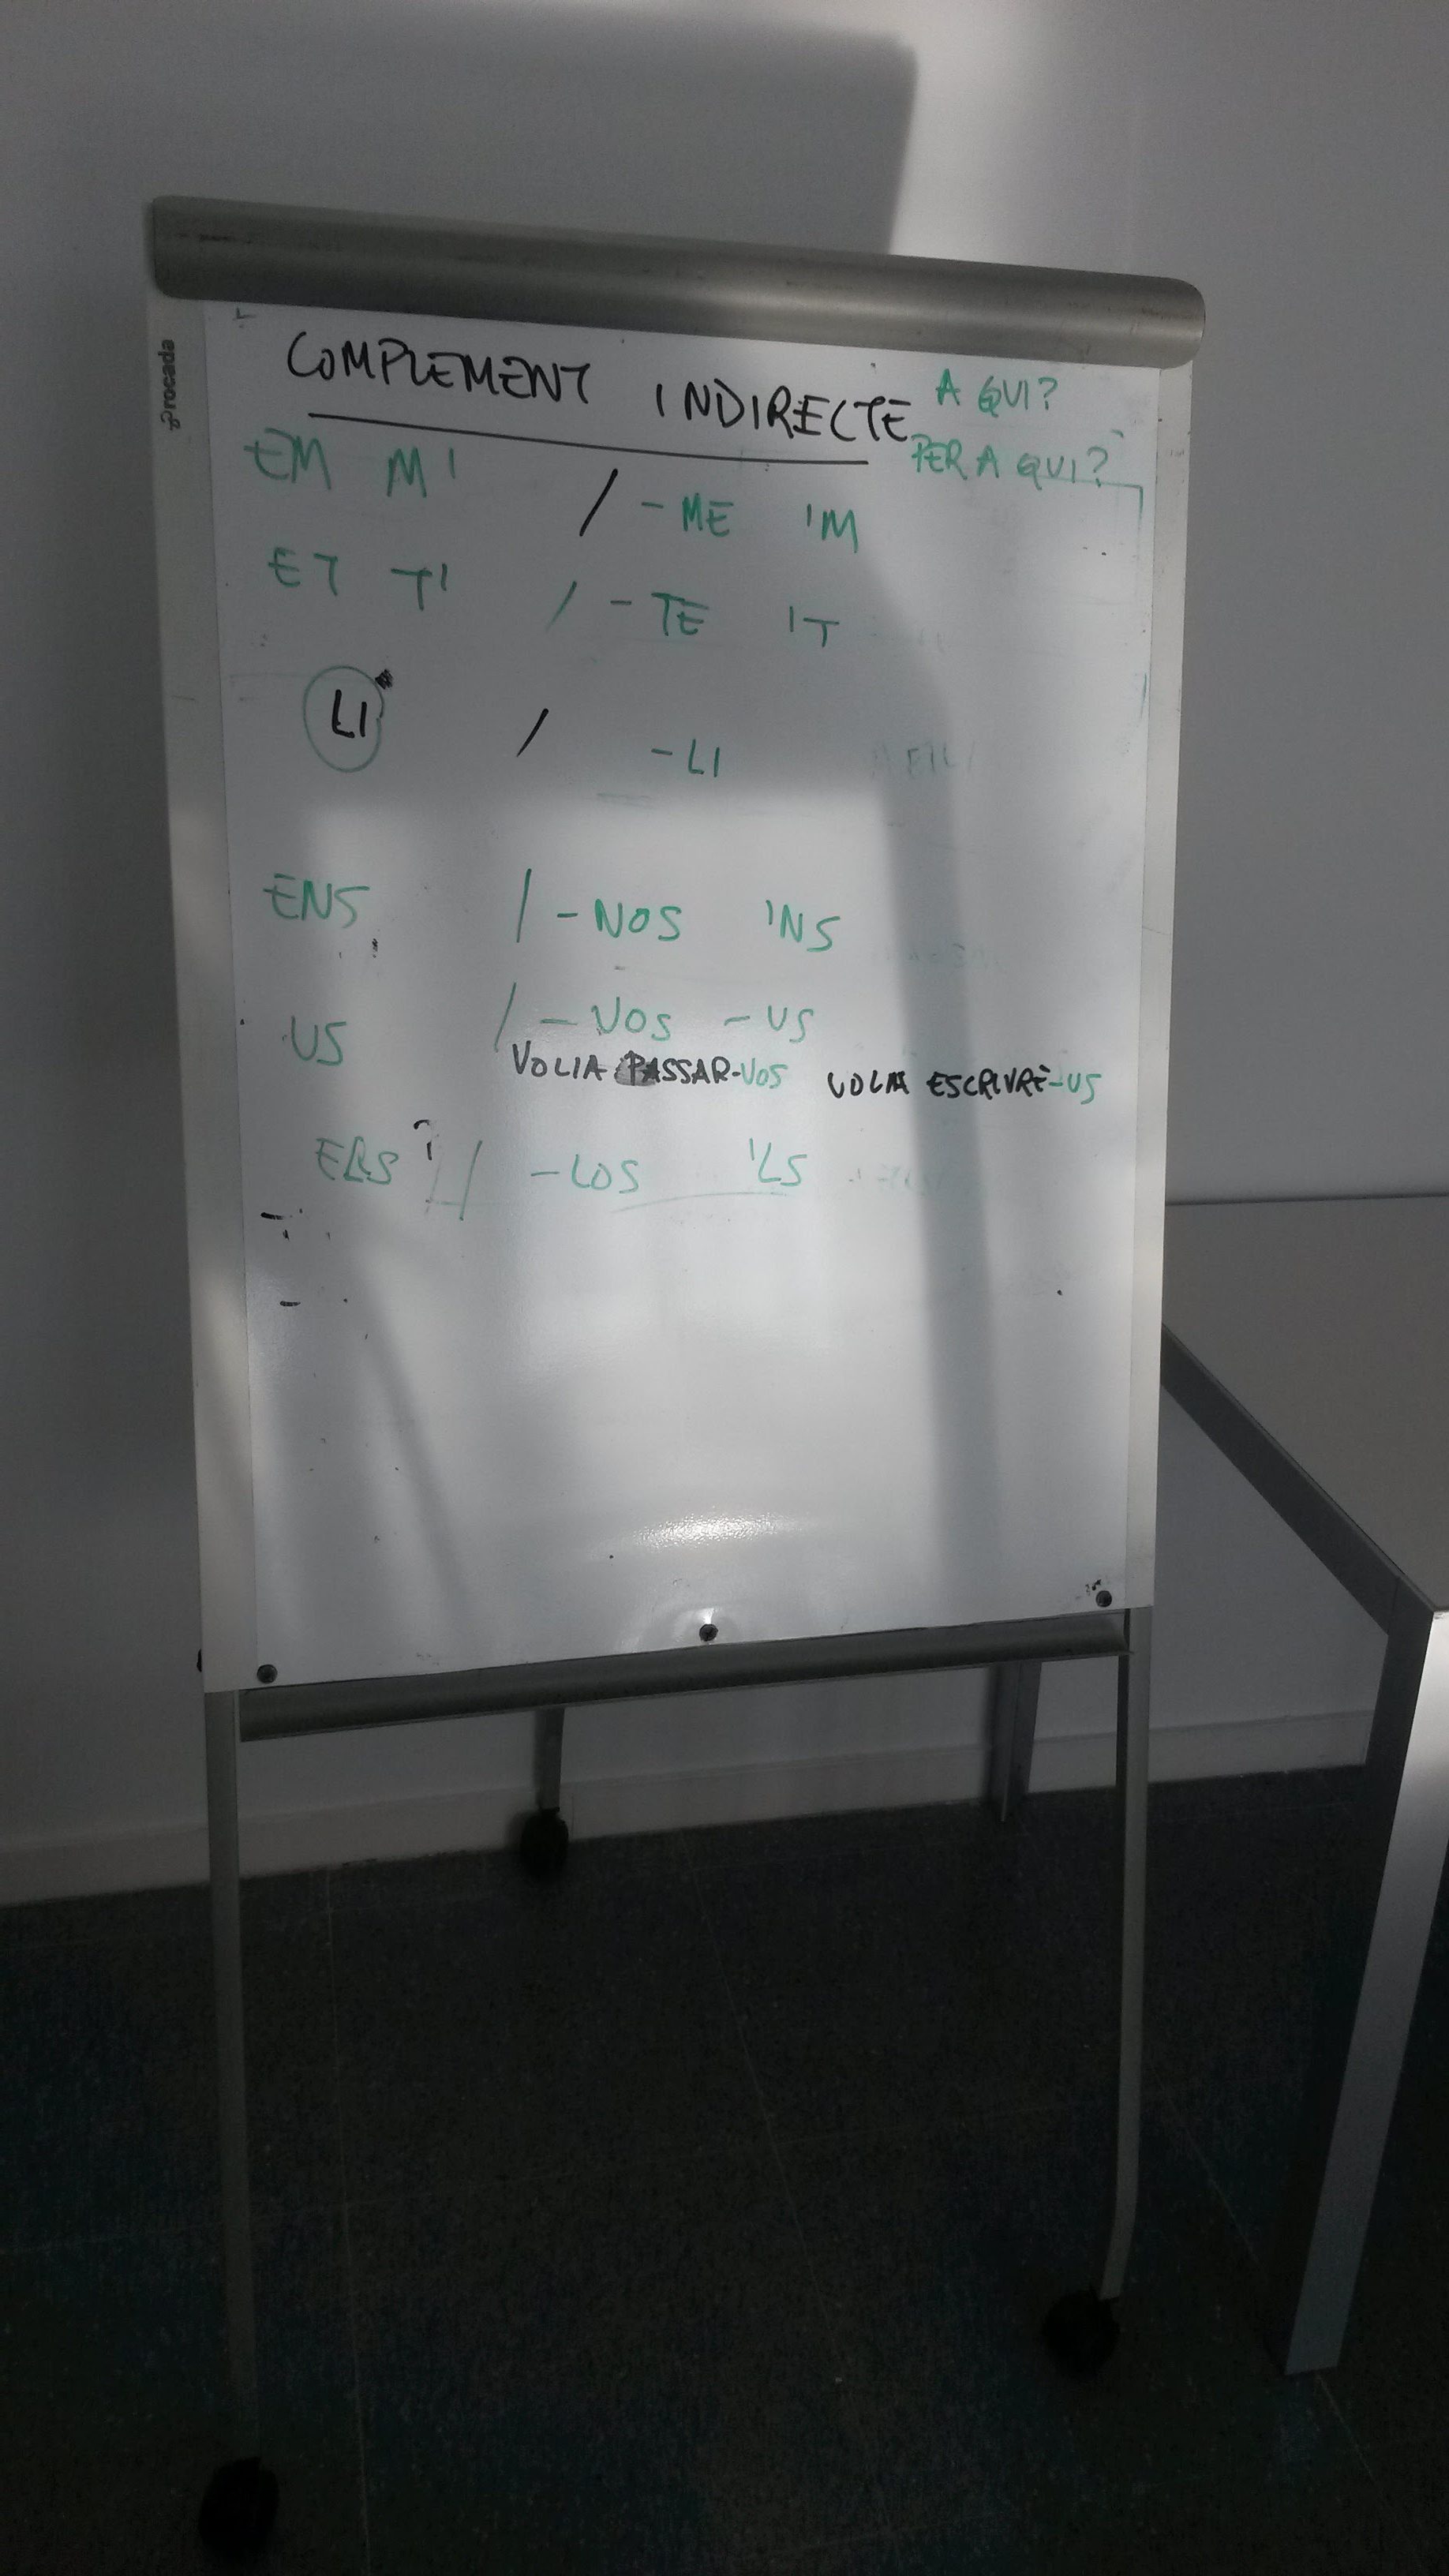 rocada
COMPLEMENT INDIRECTE
A QUI?
PER A QUI?
EM M' / -ME 'M
ET T' / -TE 'T
LI / -LI
ENS / -NOS 'NS
US / -VOS -US
VOLIA PASSAR-VOS VOLIA ESCRIVRE-US
ELS / -LOS 'LS